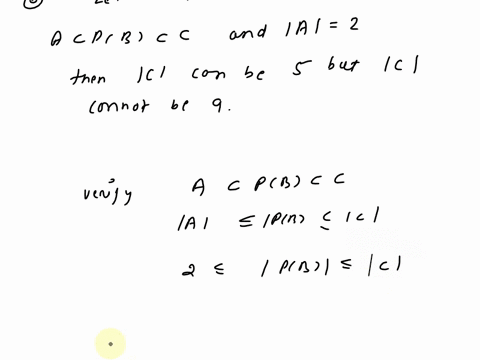 A ⊂ P(B) ⊂ C and |A| = 2
then |C| can be 5 but |C|
cannot be 9.
verify A ⊂ P(B) ⊂ C
|A| ≤ |P(B) ≤ |C|
2 ≤ |P(B)| ≤ |C|